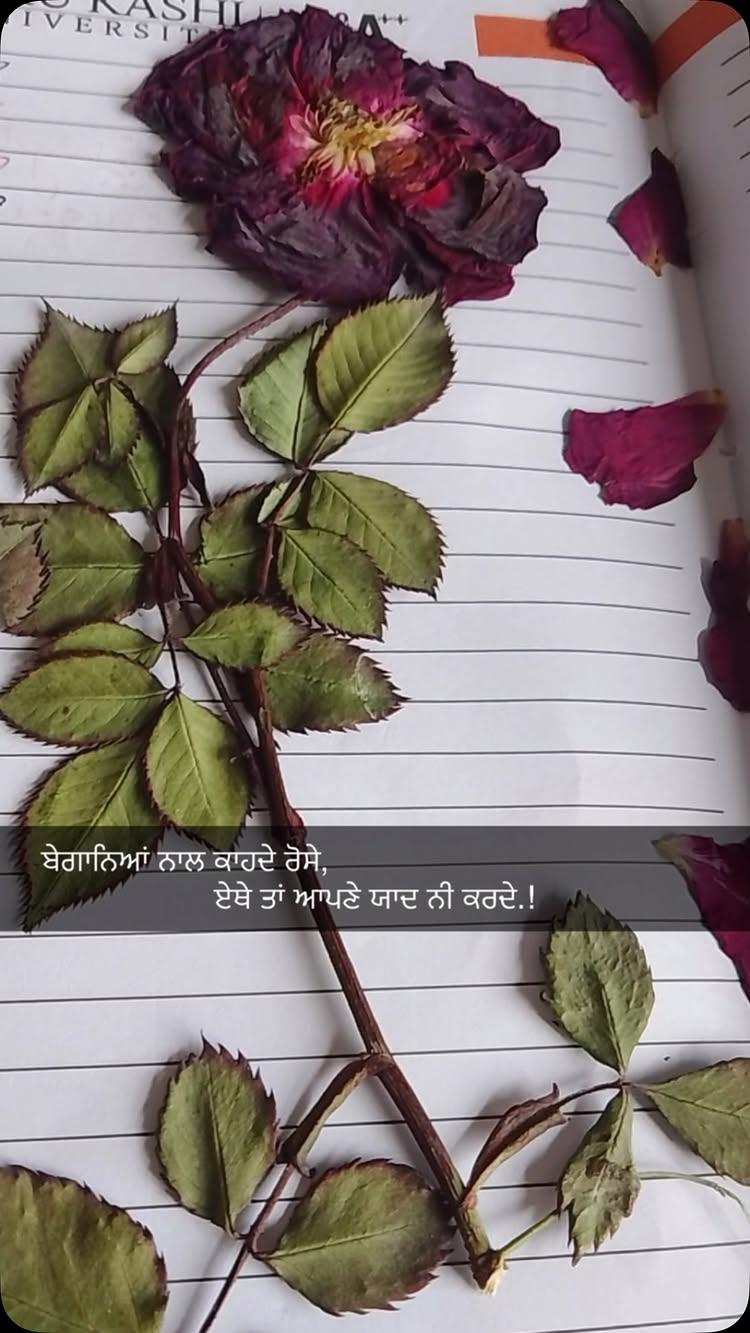 KASHI
IVERSIT
A++
ਬੇਗਾਨਿਆਂ ਨਾਲ ਕਾਹਦੇ ਰੋਸੇ,
ਏਥੇ ਤਾਂ ਆਪਣੇ ਯਾਦ ਨੀ ਕਰਦੇ.!